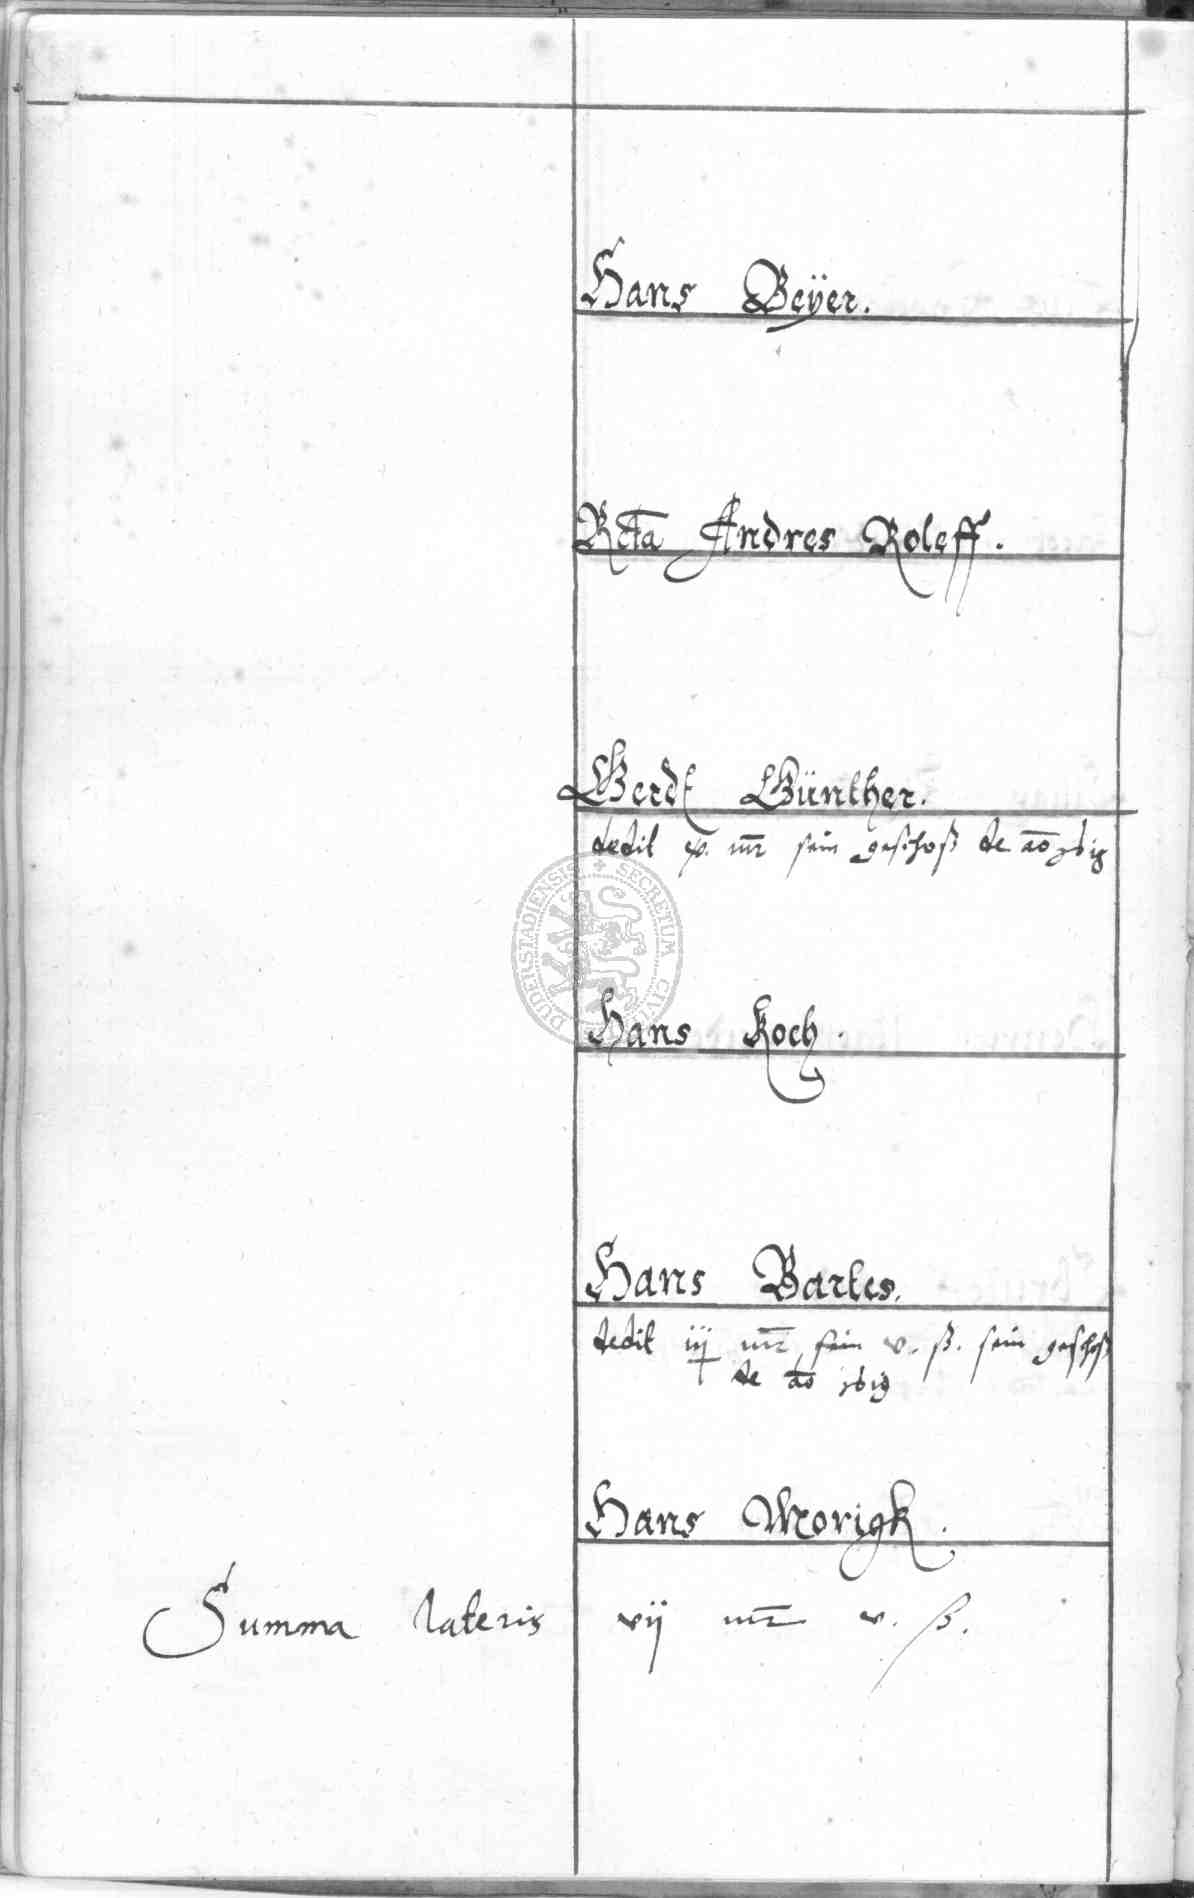 Hans Beÿer.
Rcta Andres Roleff.
Gerdt Günther.
dedit mr sein geschoß de ao
DUDERSTADIENSIS SECRETUM CIVIU
Hans Koch.
Hans Bartes.
dedit iij mr sein v. ß. sein geschoß
de ao
Hans Morigk.
Summa lateris vij mr v. ß.